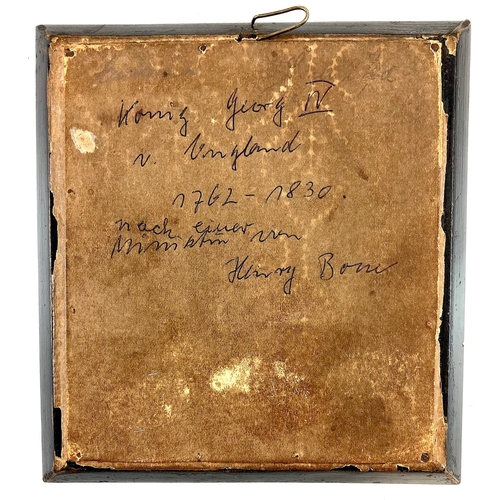 König Georg IV
v. England
1762-1830.
nach einer
Miniatur von
Henry Bone